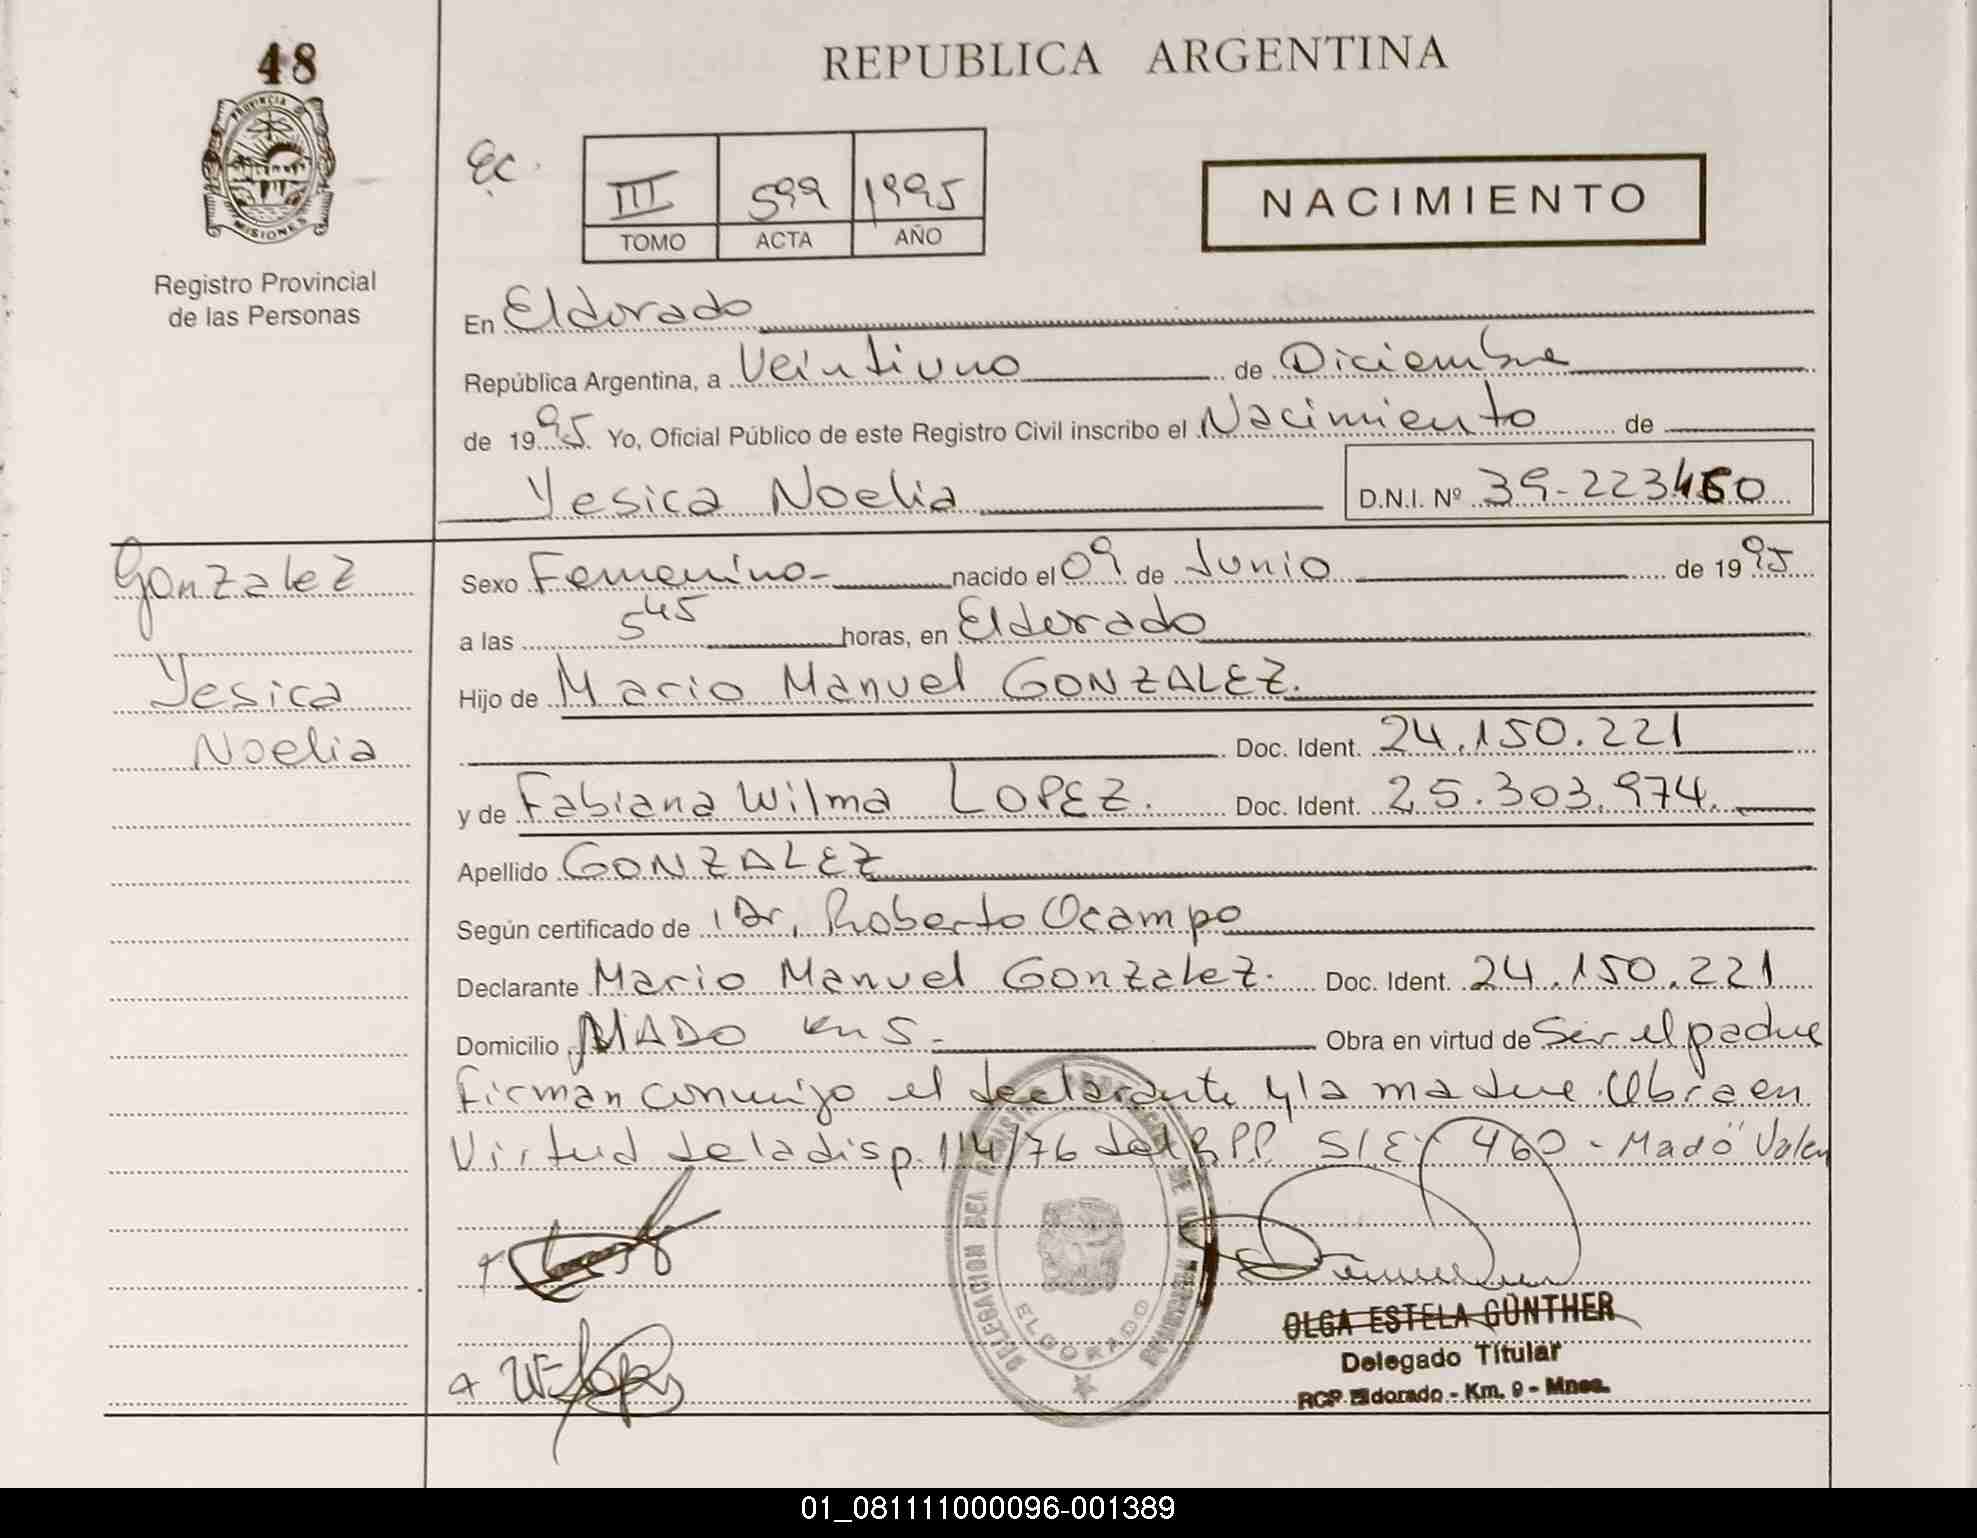 48
REPUBLICA ARGENTINA
PROVINCIA D
MISIONES
Ec.
III 599 1995
TOMO ACTA AÑO
NACIMIENTO
Registro Provincial
de las Personas
En Eldorado
República Argentina, a Veintiuno de Diciembre
de 1995. Yo, Oficial Público de este Registro Civil inscribo el Nacimiento de
Yesica Noelia D.N.I. Nº 39-223460
Gonzalez
Yesica
Noelia
Sexo Femenino- nacido el 09 de Junio de 1995
a las 5 45 horas, en Eldorado
Hijo de Mario Manuel GONZALEZ.
Doc. Ident. 24.150.221
y de Fabiana Wilma LOPEZ. Doc. Ident. 25.303.974.
Apellido GONZALEZ
Según certificado de Dr. Roberto Ocampo
Declarante Mario Manuel Gonzalez. Doc. Ident. 24.150.221
Domicilio MADO Km 5.- Obra en virtud de Ser el padre
firman conmigo el declarante y la madre. Obra en
Virtud de la disp. 114/76 del R.P.P. S/E: 460 - Madó
DELEGACION
ELDORADO
W Lopez
OLGA ESTELA GÜNTHER
Delegado Titular
RCP Eldorado - Km. 9 - Mnes.
01_081111000096-001389